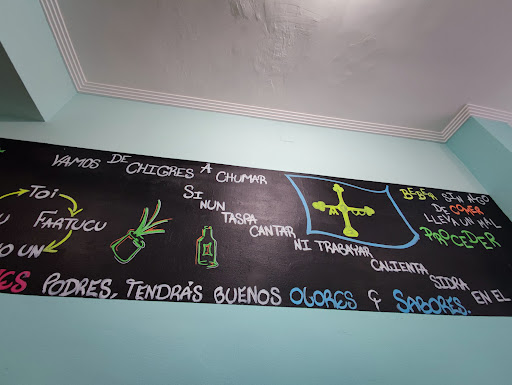 VAMOS DE CHIGRES A CHUMAR
Toi
FARTUCU
O UN
SI
NUN
TASPA
CANTAR
NI TRABAYAR
CALIENTA
SIDRA EN EL
BEBER SIN AGO
DE COMER
LLEVA UN MAL
PROCEDER
ES PODRES, TENDRÁS BUENOS OLORES Y SABORES.